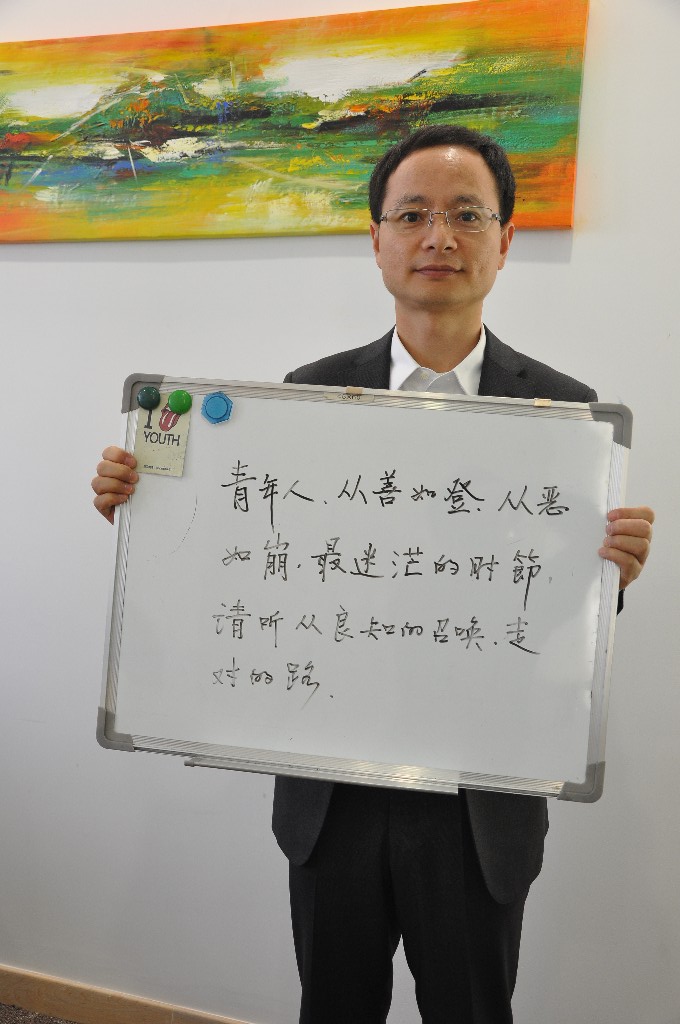 I
YOUTH
青年人、从善如登、从恶
如崩.最迷茫的时節,
请听从良知的召唤.走
对的路.